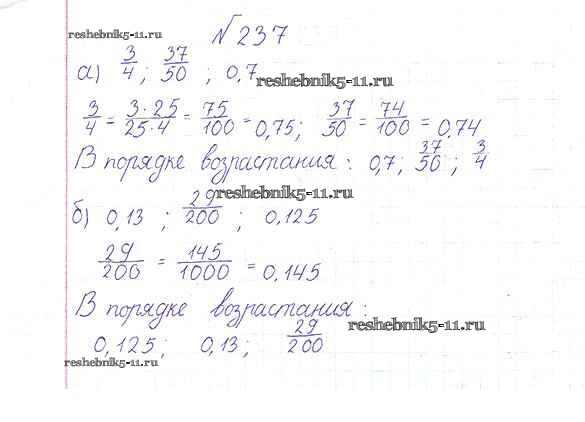 reshebnik5-11.ru
№237
а) 3/4 ; 37/50 ; 0,7
reshebnik5-11.ru
3/4 = 3·25/25·4 = 75/100 = 0,75; 37/50 = 74/100 = 0,74
В порядке возрастания: 0,7; 37/50 ; 3/4
reshebnik5-11.ru
б) 0,13 ; 29/200 ; 0,125
29/200 = 145/1000 = 0,145
В порядке возрастания:
reshebnik5-11.ru
0,125; 0,13; 29/200
reshebnik5-11.ru